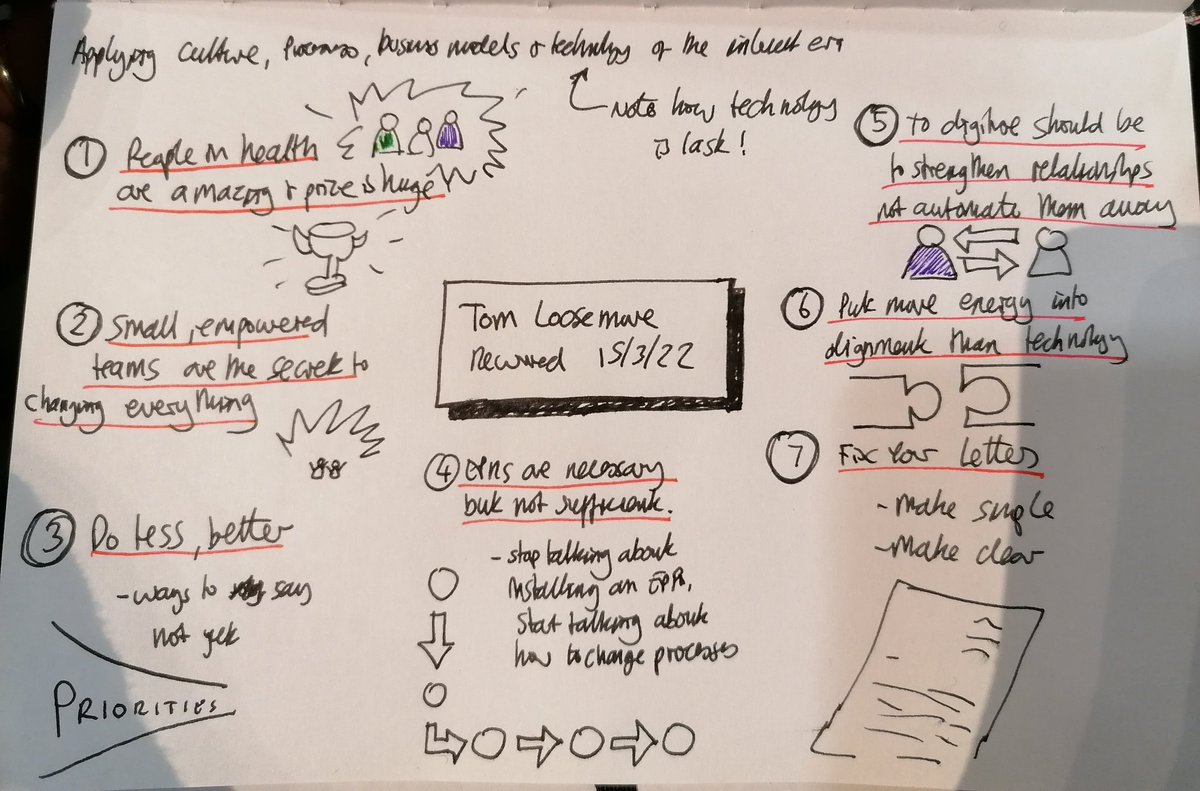 Applying culture, processes, business models & technology of the internet era
Note how technology
is last!
① People in health
are amazing & prize is huge
② Small, empowered
teams are the secret to
changing everything
③ Do less, better
- ways to say
not yet
PRIORITIES
Tom Loosemore
Rewired 15/3/22
④ EPRs are necessary
but not sufficient.
- stop talking about
installing an EPR,
Start talking about
how to change processes
⑤ to digitise should be
to strengthen relationships
not automate them away
⑥ Put more energy into
alignment than technology
⑦ Fix your letters
- Make simple
- Make clear